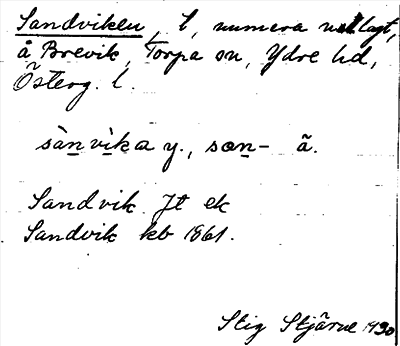 Sandviken, t, numera nedlagt,
å Brevik, Torpa sn, Ydre hd,
Österg. l.
sànvìka y., san- ä.
Sandvik Jt ek
Sandvik kb 1861.
Stig Stjärne 1930